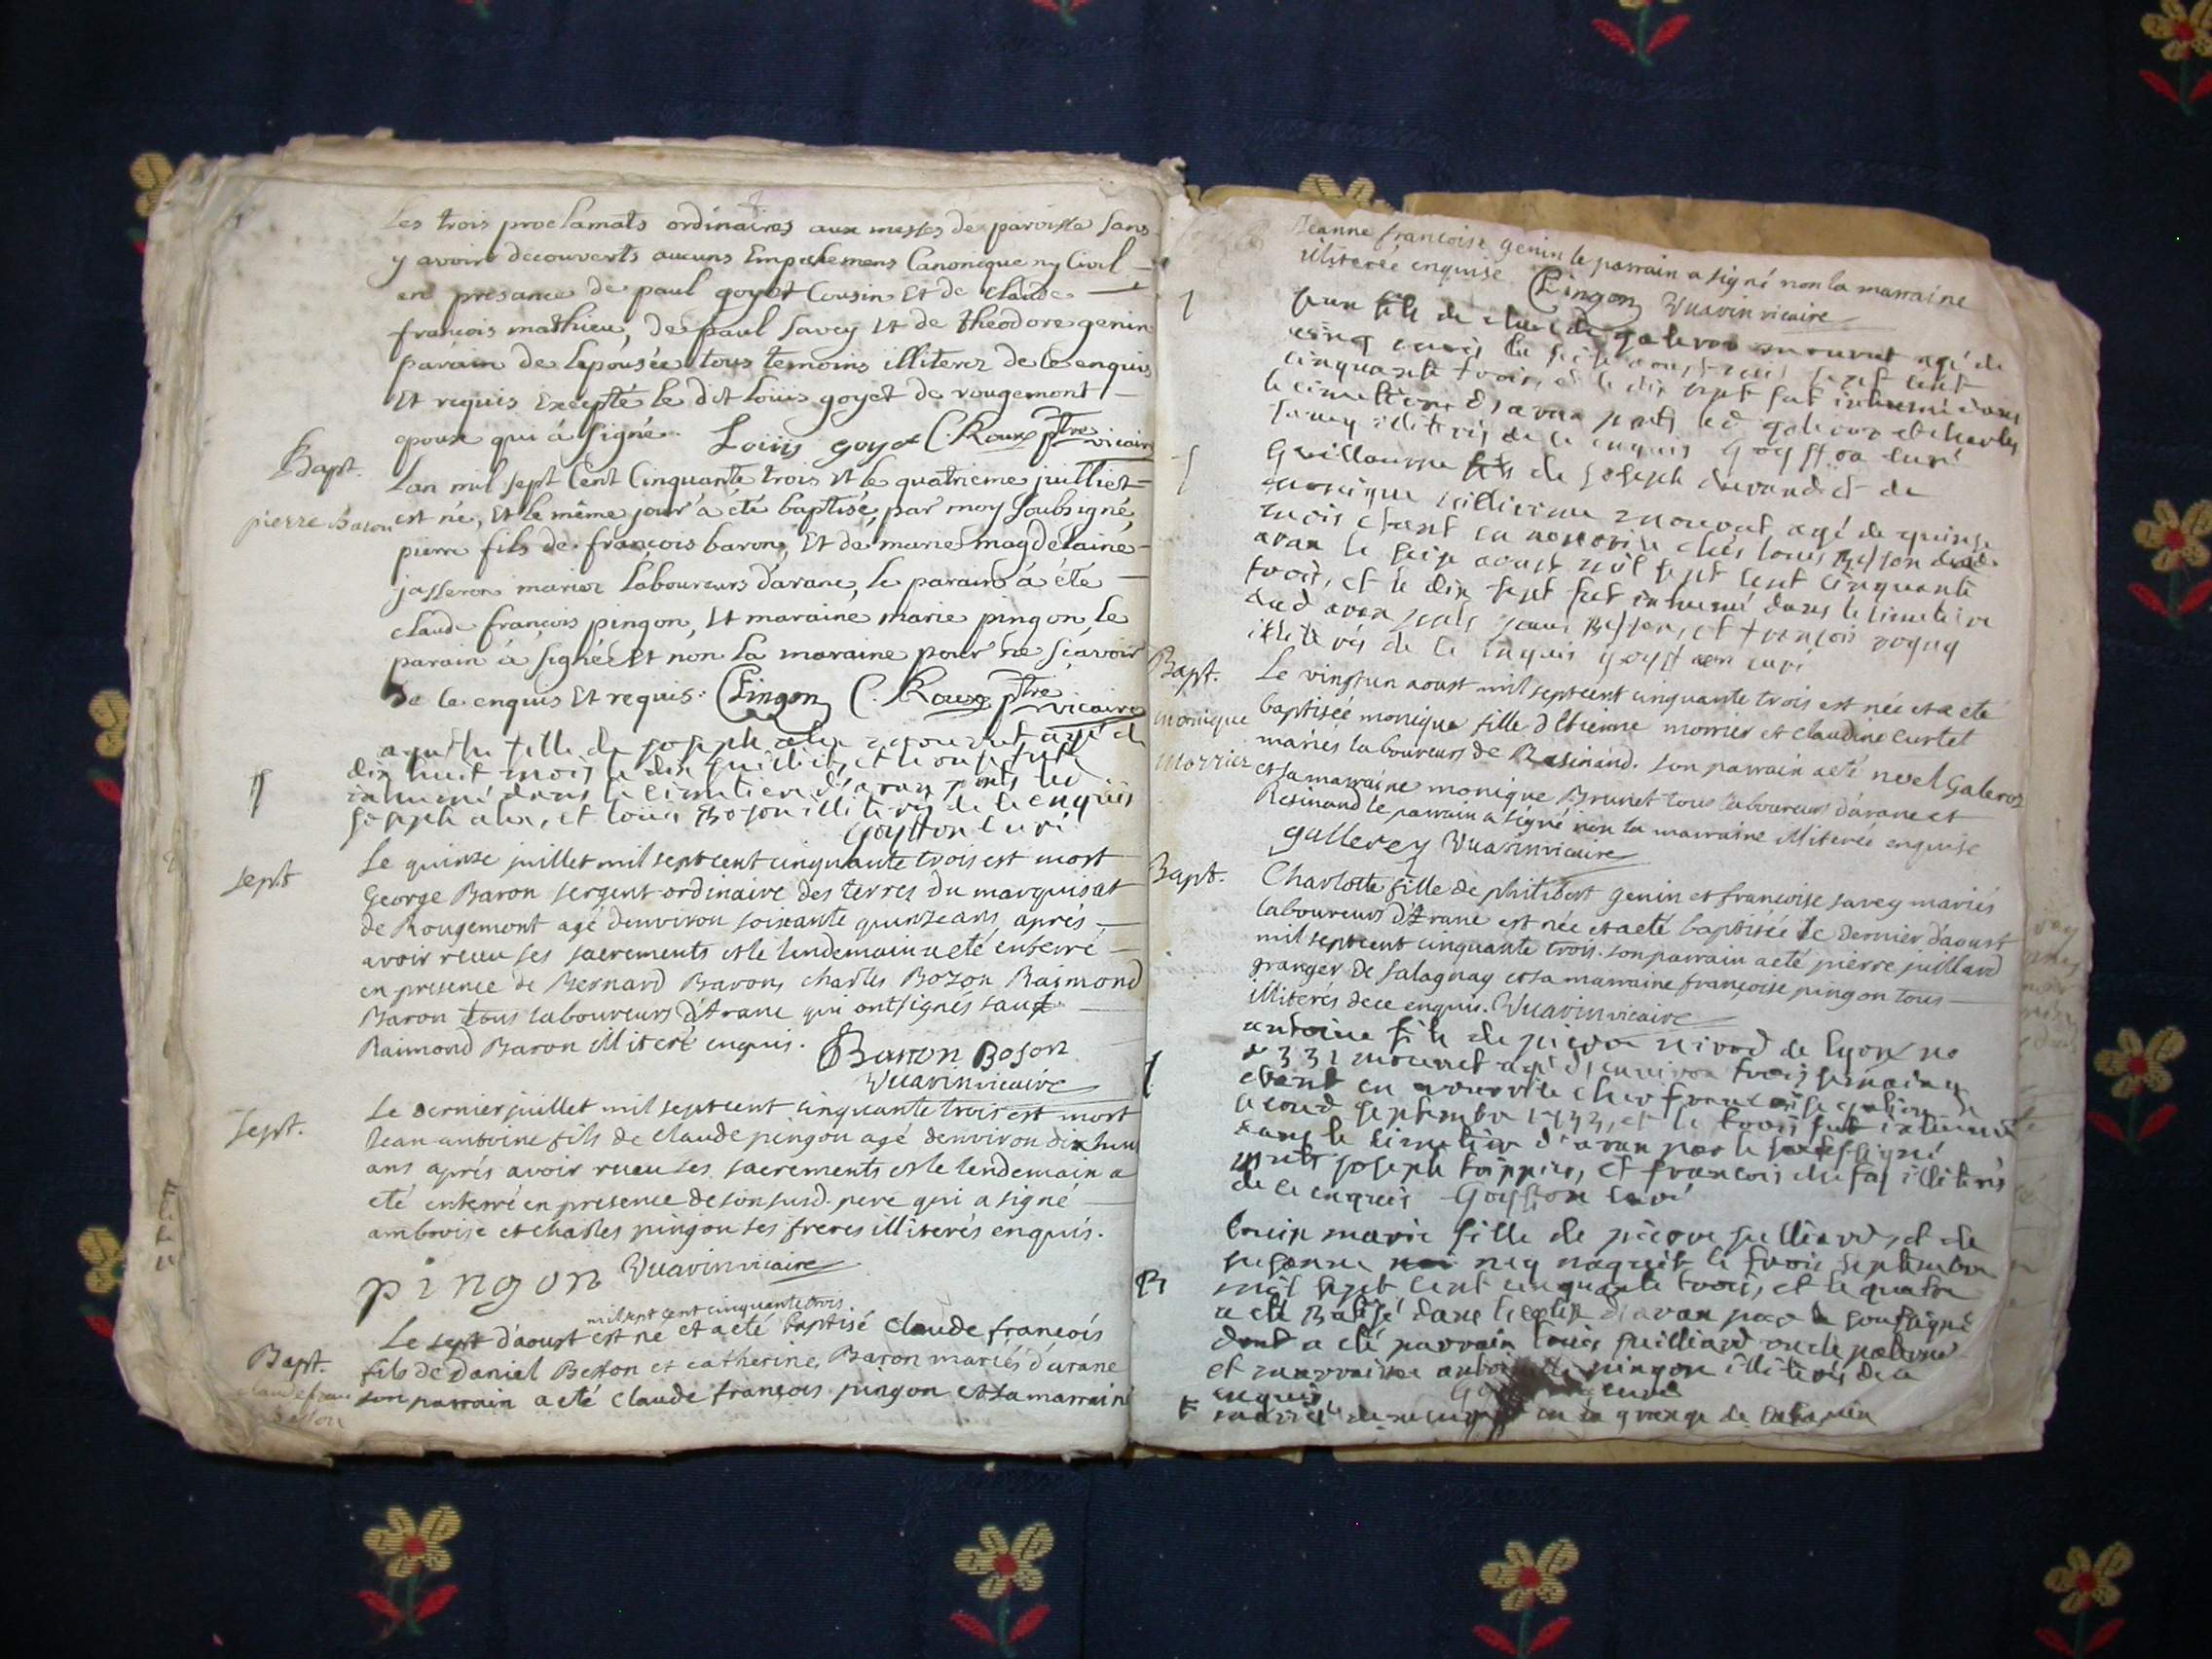 les trois proclamats ordinaires aux messes de paroisse sans
y avoir decouverts aucuns Empechemens Canonique ny Civil
en presance de paul goyet Cousin Et de claude
francois mathieu, de paul savey Et de theodore genin
parain de lepousée tous temoins illiterez de ce enquis
Et requis Excepté le dit Louis goyet de rougemont
epoux qui à signé. Louis goyet C. Roux ptre vicaire
Bapt. Lan mil sept Cent Cinquante trois Et le quatrieme juilliet
pierre Baron est né, Et le même jour à été baptisé, par moy soubsigné,
pierre fils de françois baron, Et de marie magdelaine
jasseron mariez laboureurs d'arane, le parain à été
claude françois pingon, Et maraine marie pingon, le
parain à signé Et non la maraine pour ne sçavoir
de ce enquis Et requis. C Pingon C. Roux ptre vicaire
fille de joseph mourut agé de
dix huit mois le dix juillet, et le onze fut
inhumé dans le cimetiere d'aran pnts led
joseph et louis Boson illiterés de ce enquis
Goyffon curé
sept Le quinze juillet mil sept cent cinquante trois est mort
George Baron sergent ordinaire des terres du marquisat
de Rougemont agé denviron soixante quinze ans, aprés
avoir receu ses sacrements et le lendemain a eté enterré
en presence de Bernard Baron, charles Bozon Raimond
Baron tous laboureurs d'Arane qui ont signés sauf
Raimond Baron illiteré enquis. Baron Boson
Vuarin vicaire
sept. Le dernier juillet mil sept cent cinquante trois est mort
Jean antoine fils de claude pingon agé denviron dix huit
ans aprés avoir receu ses sacrements et le lendemain a
eté enterré en presence de son susd. pere qui a signé
ambroise et charles pingon ses freres illiterés enquis.
pingon Vuarin vicaire
mil sept cent cinquante trois.
Le sept d'aoust est né et a eté baptisé claude françois
Bapt. fils de Daniel Besson et catherine Baron mariés d'arane
claude fran son parrain a eté claude françois pingon et sa marraine
Jeanne françoise genin le parrain a signé non la marraine
illiterée enquise C Pingon Vuarin vicaire
fils de galeroz mourut agé de
cinq mois le seize aoust mil sept cent
cinquante trois, et le dix sept fut inhumé dans
le cimetiere d'aran pnts led galeroz et charles
savey illiterés de ce enquis Goyffon curé
Guillaume fils de joseph durand et de
monique mourut agé de quinze
mois etant en nourrice chés louis Besson dud
aran le seize aoust mil sept cent cinquante
trois, et le dix sept fut inhumé dans le cimetiere
dud aran pnts Besson, et françois
illiterés de ce enquis Goyffon curé
Bapt. Le vingt un aoust mil sept cent cinquante trois est née et a eté
monique baptisée monique fille d'Etienne morrier et claudine curtet
morrier mariés laboureurs de Resinand. son parrain a eté noel Galeroz
et sa marraine monique Brunet tous laboureurs d'arane et
Resinand le parrain a signé non la marraine illiterée enquise
gallerey Vuarin vicaire
Bapt. Charlotte fille de philibert genin et françoise savey mariés
laboureurs d'Arane est née et a eté baptisée le dernier d'aoust
mil sept cent cinquante trois. son parrain a eté pierre juillard
granger de salagnay et sa marraine françoise pingon tous
illiterés de ce enquis. Vuarin vicaire
antoine fils de pierre de lyon no
331 mourut agé d'environ trois semaines
etant en nourrice chez
second septembre 1753, et le trois fut inhumé
dans le cimetiere d'aran par le soussigné
pnts joseph trippier, et françois illiterés
de ce enquis Goyffon curé
louise marie fille de pierre juilliard, et de
susanne ney naquit le trois septembre
B mil sept cent cinquante trois, et le quatre
a eté Batisé dans l'eglise d'aran par le soussigné
dont a eté parrain louis juilliard oncle paternel
et marraine pingon illiterés de ce
enquis curé
en la grange de